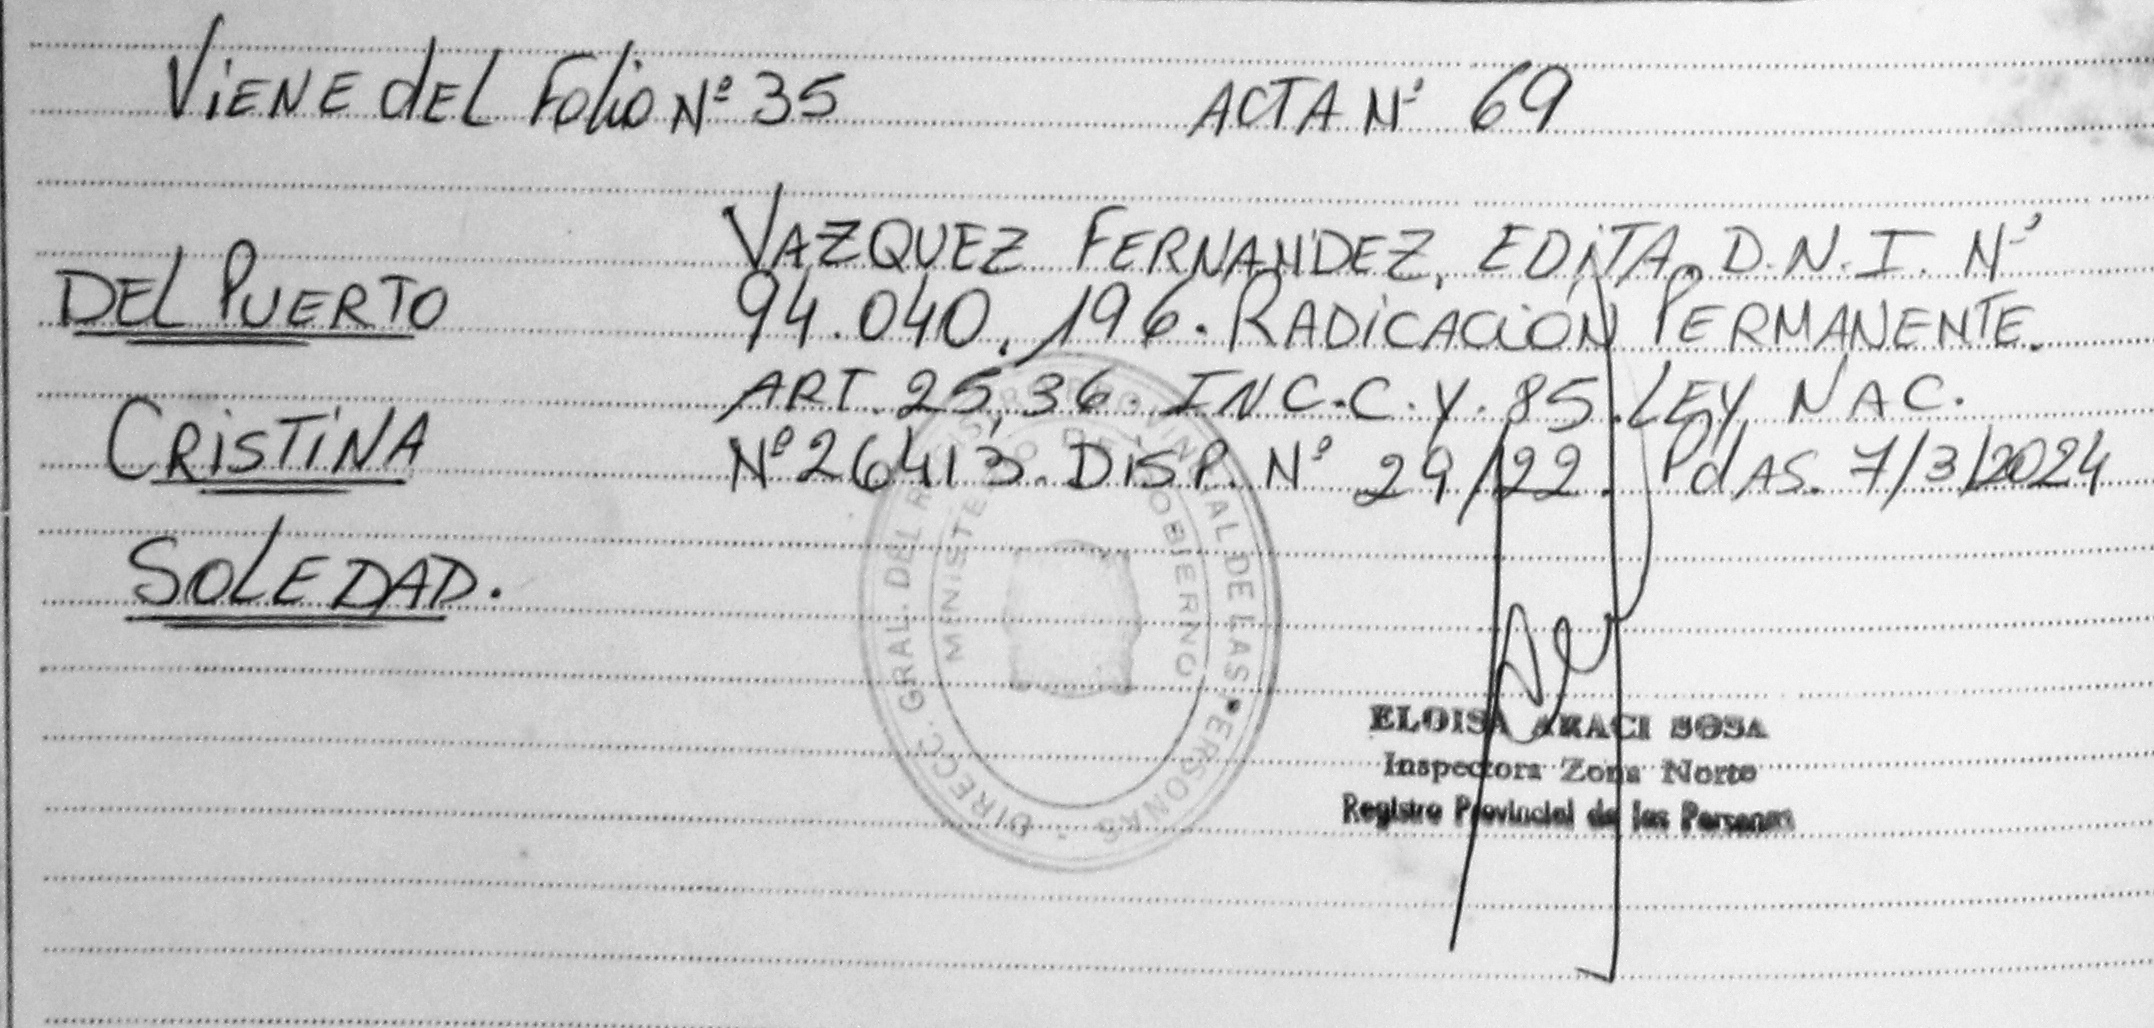 ViENE dEL Folio Nº 35 ACTA Nº 69
VAZQUEZ FERNANDEZ, EDITA. D.N.I. Nº
DEL PUERTO
94.040.196. RADICACIÓN PERMANENTE.
ART. 25, 36. INC.C.Y. 85. LEY NAC.
CRISTINA
Nº 26413. DISP. Nº 29/22. PdAS. 7/3/2024
SOLEDAD.
DIRECC. GRAL. DEL REGISTRO PROVINCIAL DE LAS PERSONAS
MINISTERIO DE GOBIERNO
ELOISA ARACI SOSA
Inspectora Zona Norte
Registro Provincial de las Personas